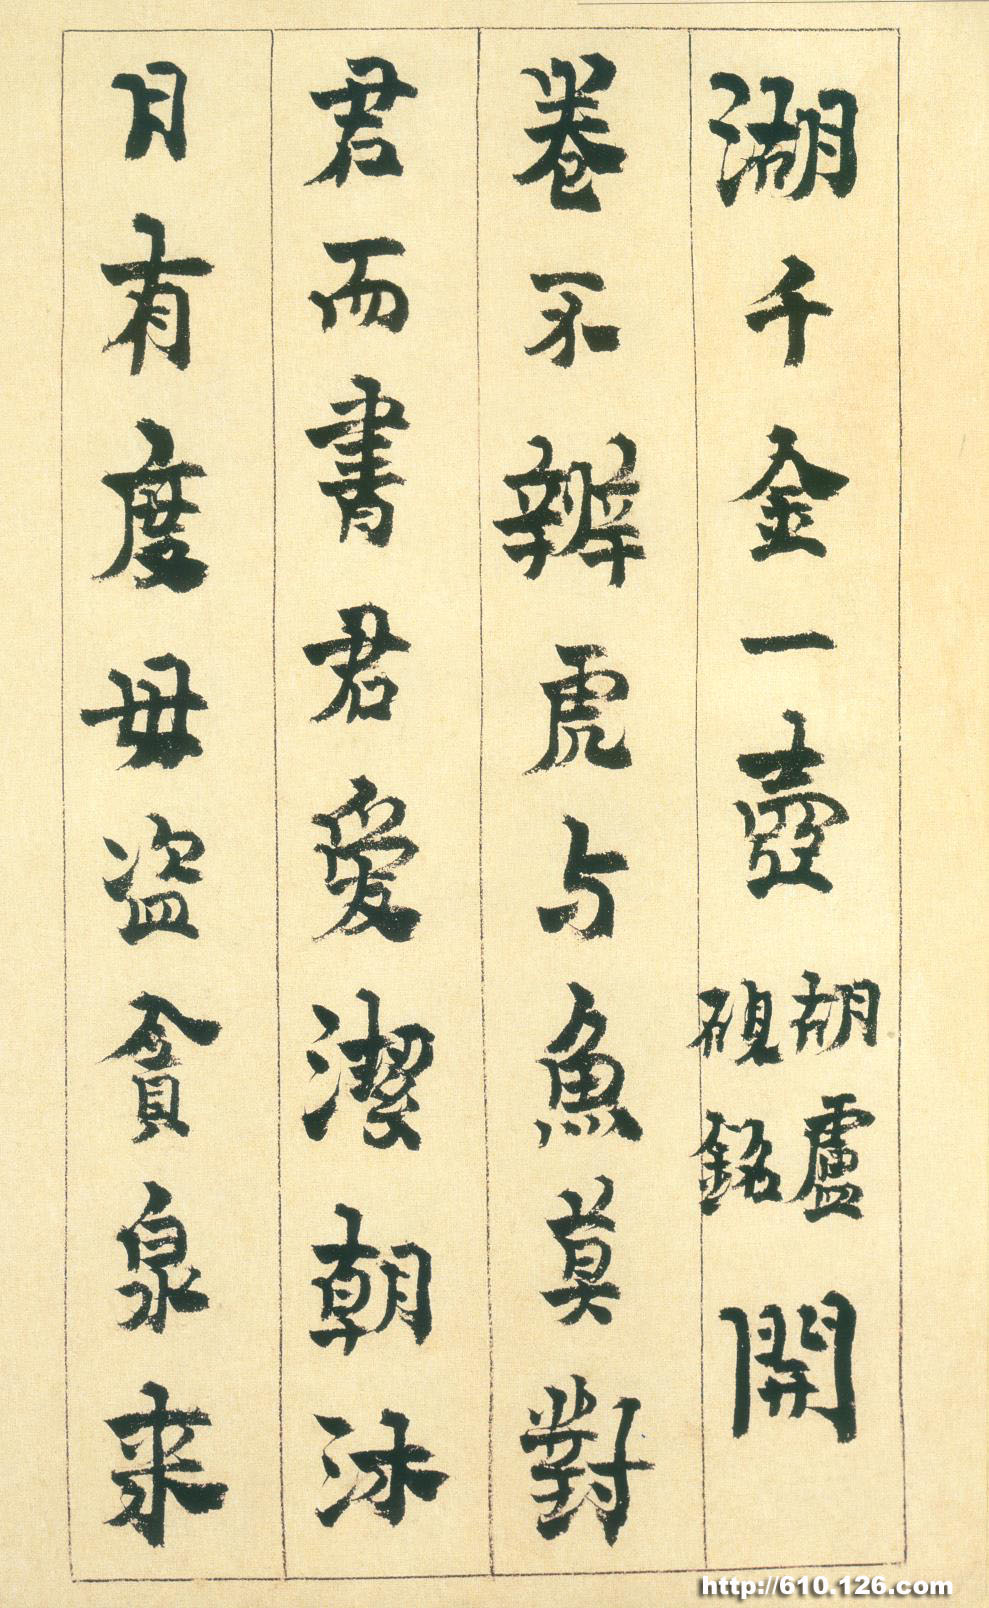 湖千金一壺胡盧硯銘開
卷不辨虎与魚莫對
君而書君愛潔朝沐
月有度毋盗貪泉来
http://610.126.com